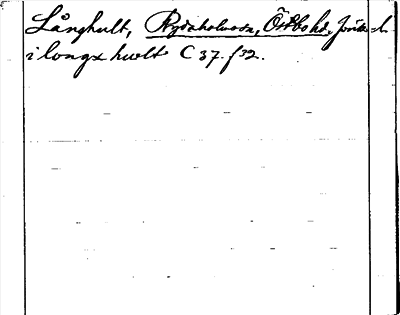 Långhult, Rydaholms sn, Östbo hd, Jönk. l.
i longx hwlt C 37. f 32.